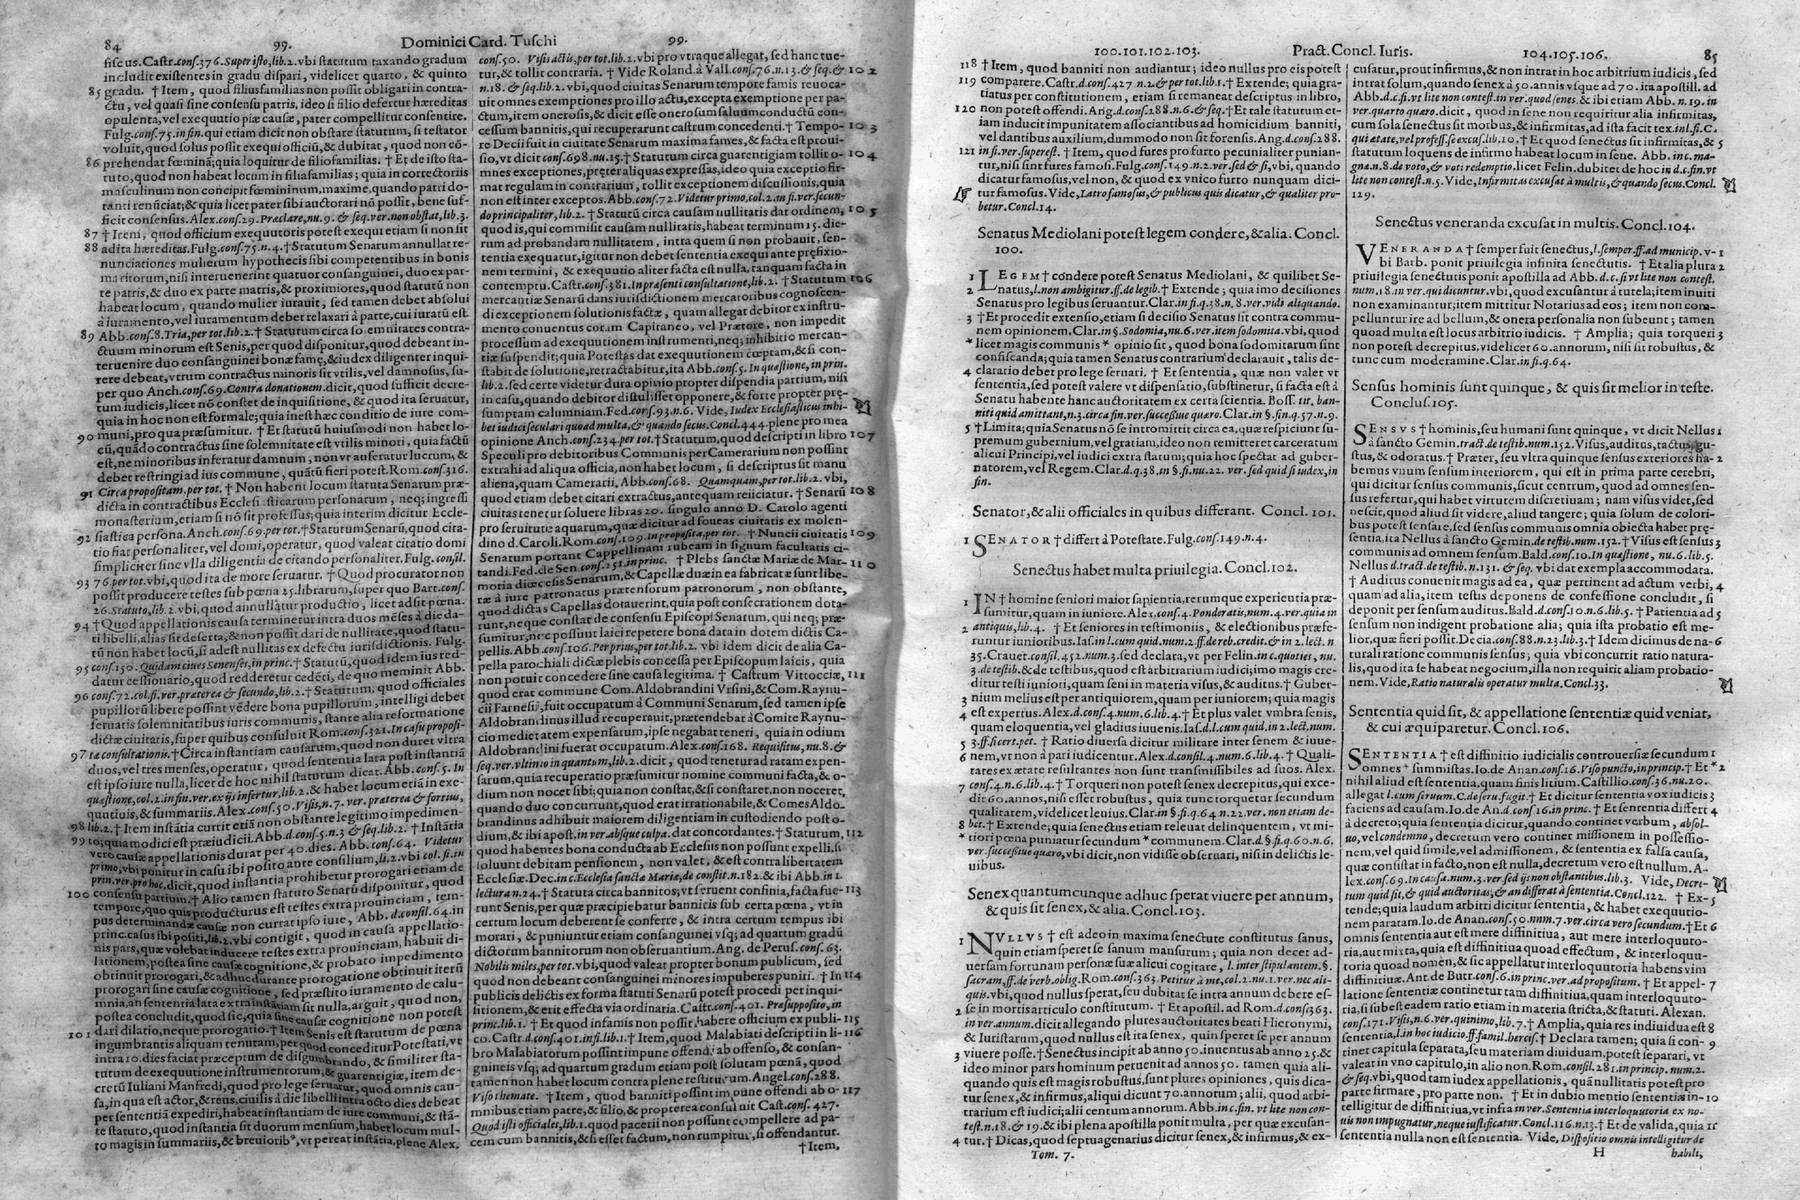 84 99. Dominici Card. Tuschi 99.
fiscus. Castr. conf. 376. Super isto, lib. 2. vbi statutum taxando gradum
includit existentes in gradu dispari, videlicet quarto, & quinto
85 gradu. † Item, quod filiusfamilias non possit obligari in contra-
ctu, vel quasi sine consensu patris, ideo si filio defertur hæreditas
opulenta, vel exequutio piæ causæ, pater compellitur consentire.
Fulg. conf. 75. in fin. qui etiam dicit non obstare statutum, si testator
voluit, quod solus possit exequi officiū, & dubitat, quod non cō-
86 prehendat fœminā; quia loquitur de filiofamilias. † Et de isto sta-
tuto, quod non habeat locum in filiafamilias; quia in correctoriis
masculinum non concipit fœmininum, maxime, quando patri do-
tanti renūciat; & quia licet pater sibi auctorari nō possit, bene suf-
ficit consensus. Alex. conf. 29. Præclare, nu. 9. & seq. ver. non obstat, lib. 3.
87 † Item, quod officium exequutoris potest exequi etiam si non sit
88 adita hæreditas. Fulg. conf. 75. n. 4. † Statutum Senarum annullat re-
nunciationes mulierum hypothecis sibi competentibus in bonis
maritorum, nisi interuenerint quatuor consanguinei, duo ex par-
te patris, & duo ex parte matris, & proximiores, quod statutū non
habeat locum, quando mulier iurauit, sed tamen debet absolui
à iuramento, vel iuramentum debet relaxari à parte, cui iuratū est.
89 Abb. conf. 8. Tria, per tot. lib. 2. † Statutum circa solemnitates contra-
ctuum minorum est Senis, per quod disponitur, quod debeant in-
teruenire duo consanguinei bonæ famę, & iudex diligenter inqui-
rere debeat, vtrum contractus minoris sit vtilis, vel damnosus, su-
per quo Anch. conf. 69. Contra donationem. dicit, quod sufficit decre-
tum iudicis, licet nō constet de inquisitione, & quod ita seruatur,
quia in hoc non est formale; quia inest hæc conditio de iure com-
90 muni, pro qua præsumitur. † Et statutū huiusmodi non habet lo-
cū, quādo contractus sine solemnitate est vtilis minori, quia factū
est, ne minoribus inferatur damnum, non vt auferatur lucrum, &
debet restringi ad ius commune, quātū fieri potest Rom. conf. 316.
91 Circa propositam. per tot. † Non habent locum statuta Senarum præ-
dicta in contractibus Ecclesiasticarum personarum, neq; ingressi
monasterium, etiam si nō sit professus; quia interim dicitur Eccle-
siastica persona. Anch. conf. 69. per tot. † Statutum Senarū, quod cita-
92 tio fiat personaliter, vel domi, operatur, quod valeat citatio domi
simpliciter sine vlla diligentia de citando personaliter. Fulg. consil.
93 76. per tot. vbi, quod ita de more seruatur. † Quod procurator non
possit producere testes sub pœna 25. librarum, super quo Bart. conf.
26. Statuto, lib. 2. vbi, quod annullatur productio, licet adsit pœna.
94 † Quod appellationis causa terminetur intra duos mēses à die da-
ti libelli, alias sit deserta, & non possit dari de nullitate, quod statu-
tū non habet locū, si adest nullitas ex defectu iurisdictionis. Fulg.
95 conf. 150. Quidam ciues Senenses, in princ. † Statutū, quod idem ius red-
datur cessionario, quod redderetur cedēti, de quo meminit Abb.
96 conf. 72. col. fi. ver. præterea & secundo, lib. 2. † Statutum, quod officiales
pupillorū libere possint vēdere bona pupillorum, intelligi debet
seruatis solemnitatibus iuris communis, stante alia reformatione
dictæ ciuitatis, super quibus consuluit Rom. conf. 321. In casu proposi-
97 tæ consultationis. † Circa instantiam causarum, quod non duret vltra
duos, vel tres menses, operatur, quod sententia lata post instantiā
est ipso iure nulla, licet de hoc nihil statutum dicat. Abb. conf. 5. In
quæstione, col. 2. in fin. ver. ex ijs infertur, lib. 2. & habet locū etiā in exe-
quutiuis, & summariis. Alex. conf. 50. Visis, n. 7. ver. præterea & fortius,
98 lib. 2. † Item instātia currit etiā non obstante legitimo impedimen-
99 to; quia modici est præiudicii. Abb. d. conf. 5. n. 3 & seq. lib. 2. † Instātia
vero causæ appellationis durat per 40. dies. Abb. conf. 64. Videtur
primo, vbi ponitur in casu ibi posito ante consilium, li. 2. vbi col. fi. in
prin. ver. pro hoc. dicit, quod instantia prohibetur prorogari etiam de
100 consensu partium. † Alio tamen statuto Senarū disponitur, quod
tempore, quo quis producturus est testes extra prouinciam, tem-
pus determinandæ causæ non currat ipso iure, Abb. d. consil. 64. in
princ. casus ibi positi, lib. 2. vbi contigit, quod in causa appellatio-
nis pars, quæ volebat inducere testes extra prouinciam, habuit di-
lationem; postea sine causæ cognitione, & probato impedimento
obtinuit prorogari, & adhuc durante prorogatione obtinuit iterū
prorogari sine causæ cognitione, sed præstito iuramento de calu-
mnia, an sententia lata extra instātiam sit nulla, arguit, quod non,
postea concludit, quod sic, quia sine causæ cognitione non potest
101 dari dilatio, neque prorogatio. † Item Senis est statutum de pœna
ingumbrantis aliquam tenutam, per quod conceditur Potestati, vt
intra 10. dies faciat præceptum de disgumbrando, & similiter sta-
tutum de exequutione instrumentorum, & guarentigiæ, item de-
cretū Iuliani Manfredi, quod pro lege seruatur, quod omnis cau-
sa, in qua est actor, & reus, ciuilis à die libelli intra octo dies debeat
per sententiā expediri, habeat instantiam de iure communi, & stā-
te statuto, quod instantia sit duorum mensium, habet locum mul-
to magis in summariis, & breuiorib⁹, vt pereat instātia, plene Alex.
conf. 50. Visis actis, per tot. lib. 2. vbi pro vtraque allegat, sed hanc tue-
tur, & tollit contraria. † Vide Roland. à Vall. conf. 76. n. 13. & seq. & 102
n. 18. & seq. lib. 2. vbi, quod ciuitas Senarum tempore famis reuoca-
uit omnes exemptiones pro illo actu, excepta exemptione per pa-
ctum, item onerosis, & dicit esse onerosum saluum conductū con-
cessum bannitis, qui recuperarunt castrum concedenti. † Tempo- 103
re Decii fuit in ciuitate Senarum maxima fames, & facta est proui-
sio, vt dicit conf. 698. nu. 15. † Statutum circa guarentigiam tollit o- 104
mnes exceptiones, pręter aliquas expressas, ideo quia exceptio fir-
mat regulam in contrarium, tollit exceptionem discussionis, quia
non est inter exceptos. Abb. conf. 72. Videtur primo, col. 2. in fi. ver. secun-
do principaliter, lib. 2. † Statutū circa causam nullitatis dat ordinem, 105
quod is, qui commisit causam nullitatis, habeat terminum 15. die-
rum ad probandam nullitatem, intra quem si non probauit, sen-
tentia exequatur, igitur non debet sententia exequi ante pręfixio-
nem termini, & exequutio aliter facta est nulla, tanquam facta in
contemptu. Castr. conf. 381. In præsenti consultatione, lib. 2. † Statutum 106
mercantiæ Senarū dans iurisdictionem mercatoribus cognoscen-
di exceptionem solutionis factæ, quam allegat debitor ex instru-
mento conuentus coram Capitaneo, vel Prætore, non impedit
processum ad exequutionem instrumenti, neq; inhibitio mercan-
tiæ suspendit; quia Potestas dat exequutionem cœptam, & si con-
stabit de solutione, retractabitur, ita Abb. conf. 5. In quæstione, in prin.
lib. 2. sed certe videtur dura opinio propter dispendia partium, nisi
in casu, quando debitor distulisset opponere, & forte propter prę-
sumptam calumniam. Fed. conf. 93. n. 6. Vide, Iudex Ecclesiasticus inhi-
bet iudici seculari quoad multa, & quando secus. Concl. 444. plene pro mea
opinione Anch. conf. 234. per tot. † Statutum, quod descripti in libro 107
Speculi pro debitoribus Communis per Camerarium non possint
extrahi ad aliqua officia, non habet locum, si descriptus sit manu
aliena, quam Camerarii. Abb. conf. 68. Quamquam, per tot. lib. 2. vbi,
quod etiam debet citari extractus, antequam reiiciatur. † Senarū 108
ciuitas tenetur soluere libras 20. singulo anno D. Carolo agenti
pro seruitute aquarum, quæ dicitur ad foueas ciuitatis ex molen-
dino d. Caroli. Rom. conf. 109. In proposita, per tot. † Nuncii ciuitatis 109
Senarum portant Cappellinam rubeam in signum facultatis ci-
tandi. Fed. de Sen. conf. 251. in princ. † Plebs sanctæ Mariæ de Mar- 110
moria diœcesis Senarum, & Capellæ duæ in ea fabricatæ sunt libe-
ræ à iure patronatus prætensorum patronorum, non obstante,
quod dictas Capellas dotauerint, quia post consecrationem dota-
runt, neque constat de consensu Episcopi Senarum, qui neq; præ-
sumitur, nec possunt laici repetere bona data in dotem dictis Ca-
pellis. Abb. conf. 106. Per prius, per tot. lib. 2. vbi idem dicit de alia Ca-
pella parochiali dictæ plebis concessa per Episcopum laicis, quia
non potuit concedere sine causa legitima. † Castrum Vittocciæ, 111
quod erat commune Com. Aldobrandini Vrsini, & Com. Raynu-
cii Farnesii, fuit occupatum à Communi Senarum, sed tamen ipse
Aldobrandinus illud recuperauit, prætendebat à Comite Raynu-
cio medietatem expensarum, ipse negabat teneri, quia in odium
Aldobrandini fuerat occupatum. Alex. conf. 168. Requisitus, nu. 8. &
seq. ver. vltimo in quantum, lib. 2. dicit, quod tenetur ad ratam expen-
sarum, quia recuperatio præsumitur nomine communi facta, & o-
dium non nocet sibi; quia non constat, & si constaret, non noceret,
quando duo concurrunt, quod erat irrationabile, & Comes Aldo-
brandinus adhibuit maiorem diligentiam in custodiendo post o-
dium, & ibi apost. in ver. absque culpa. dat concordantes. † Statutum, 112
quod habentes bona conducta ab Ecclesiis non possunt expelli, si
soluunt debitam pensionem, non valet, & est contra libertatem
Ecclesiæ. Dec. in c. Ecclesia sanctæ Mariæ, de constit. n. 182. & ibi Abb. in 2.
lectura n. 24. † Statuta circa bannitos; vt seruent confinia, facta fue- 113
runt Senis, per quæ præcipiebatur bannitis sub certa pœna, vt in
certum locum deberent se conferre, & intra certum tempus ibi
morari, & puniuntur etiam consanguinei vsq; ad quartum gradū
dictorum bannitorum non obseruantium. Ang. de Perus. conf. 63.
Nobilis miles, per tot. vbi, quod valeat propter bonum publicum, sed
quod non debeant consanguinei minores impuberes puniri. † In 114
publicis delictis ex forma statuti Senarū potest procedi per inqui-
sitionem, & erit effecta via ordinaria. Castr. conf. 401. Præsupposito, in
princ. lib. 1. † Et quod infamis non possit habere officium ex publi- 115
co. Castr. d. conf. 401. in fi. lib. 1. † Item, quod Malabiati descripti in li- 116
bro Malabiatorum possint impune offendi ab offenso, & consan-
guineis vsq; ad quartum gradum etiam post solutam pœnā, quod
tamen non habet locum contra plene restitutum. Angel. conf. 288.
Viso themate. † Item, quod banniti possint impune offendi ab o- 117
mnibus etiam patre, & filio, & propterea consuluit Cast. conf. 427.
Quod isti officiales, lib. 1. quod pacerii non possunt compellere ad pa-
cem cum bannitis, & si esset factum, non rumpitur, si offendantur.
† Item,
100.101.102.103. Pract. Concl. Iuris. 104.105.106. 85
118 † Item, quod banniti non audiantur; ideo nullus pro eis potest
119 comparere. Castr. d. conf. 427. n. 2. & per tot. lib. 1. † Extende; quia gra-
tiatus per constitutionem, etiam si remaneat descriptus in libro,
120 non potest offendi. Ang. d. conf. 288. n. 6. & seq. † Et tale statutum et-
iam inducit impunitatem associantibus ad homicidium banniti,
vel dantibus auxilium, dummodo non sit forensis. Ang. d. conf. 288.
121 in fi. ver. superest. † Item, quod fures pro furto pecuniali puniun-
tur, nisi sint fures famosi. Fulg. conf. 149. n. 2. ver. sed & si, vbi, quando
dicatur famosus, vel non, & quod ex vnico furto nunquam dici-
tur famosus. Vide, Latro famosus, & publicus quis dicatur, & qualiter pro-
betur. Concl. 14.
Senatus Mediolani potest legem condere, & alia. Concl.
100.
1 LEGEM † condere potest Senatus Mediolani, & quilibet Se-
2 natus, l. non ambigitur. ff. de legib. † Extende; quia imo decisiones
Senatus pro legibus seruantur. Clar. in fi. q. 38. n. 8. ver. vidi aliquando.
3 † Et procedit extenso, etiam si decisio Senatus sit contra commu-
nem opinionem. Clar. in §. Sodomia, nu. 6. ver. item sodomita. vbi, quod
* licet magis communis * opinio sit, quod bona sodomitarum sint
confiscanda; quia tamen Senatus contrarium declarauit, talis de-
4 claratio debet pro lege seruari. † Et sententia, quæ non valet vt
sententia, sed potest valere vt dispensatio, substinetur, si facta est à
Senatu habente hanc auctoritatem ex certa scientia. Boss. tit. ban-
niti quid amittant, n. 3. circa fin. ver. successiue quæro. Clar. in §. fin. q. 57. n. 9.
5 † Limita; quia Senatus nō se intromittit circa ea, quæ respiciunt su-
premum gubernium, vel gratiam, ideo non remitteret carceratum
alicui Principi, vel iudici extra statum; quia hoc spectat ad guber-
natorem, vel Regem. Clar. d. q. 38. in §. fi. nu. 22. ver. sed quid si iudex, in
fin.
Senator, & alii officiales in quibus differant. Concl. 101.
1 SENATOR † differt à Potestate. Fulg. conf. 149. n. 4.
Senectus habet multa priuilegia. Concl. 102.
1 IN † homine seniori maior sapientia, rerumque experientia præ-
sumitur, quam in iuniore. Alex. conf. 4. Ponderatis, num. 4. ver. quia in
2 antiquis, lib. 4. † Et seniores in testimoniis, & electionibus præfe-
runtur iunioribus. Ias. in l. cum quid. num. 2. ff. de reb. credit. & in 2. lect. n
35. Crauet. consil. 452. num. 3. sed declara, vt per Felin. in c. quoties, nu.
3. de testib. & de testibus, quod est arbitrarium iudici; imo magis cre-
ditur testi iuniori, quam seni in materia visus, & auditus. † Guber-
3 nium melius est per antiquiorem, quam per iuniorem; quia magis
4 est expertus. Alex. d. conf. 4. num. 6. lib. 4. † Et plus valet vmbra senis,
quam eloquentia, vel gladius iuuenis. Ias. d. l. cum quid. in 2. lect. num.
5 3. ff. si cert. pet. † Ratio diuersa dicitur militare inter senem & iuue-
6 nem, vt non à pari iudicentur. Alex. d. consil. 4. num. 6. lib. 4. † Quali-
tates ex ætate resultantes non sunt transmissibiles ad suos. Alex.
7 conf. 4. n. 6. lib. 4. † Torqueri non potest senex decrepitus, qui exce-
dit 60. annos, nisi esset robustus, quia tunc torquetur secundum
qualitatem, videlicet leuius. Clar. in §. fi. q. 64. n. 22. ver. non etiam de-
8 bet. † Extende; quia senectus etiam releuat delinquentem, vt mi-
* tiori pœna puniatur secundum * communem. Clar. d. § fi. q. 60. n. 6.
ver. successiue quæro, vbi dicit, non vidisse obseruari, nisi in delictis le-
uibus.
Senex quantumcunque adhuc sperat viuere per annum,
& quis sit senex, & alia. Concl. 103.
1 NVLLVS † est adeo in maxima senectute constitutus sanus,
quin etiam speret se sanum mansurum; quia non decet ad-
uersam fortunam personæ suæ alicui cogitare, l. inter stipulantem. §.
sacram, ff. de verb. oblig. Rom. conf. 363. Petitur à me, col. 2. nu. 1. ver. nec ali-
quis. vbi, quod nullus sperat, seu dubitat se intra annum debere es-
2 se in mortis articulo constitutum. † Et apostil. ad Rom. d. conf. 363.
in ver. annum. dicit allegando plures auctoritates beati Hieronymi,
& Iuristarum, quod nullus est ita senex, quin speret se per annum
3 viuere posse. † Senectus incipit ab anno 50. inuentus ab anno 25. &
ideo minor pars hominum peruenit ad annos 50. tamen quia ali-
quando quis est magis robustus, sunt plures opiniones, quis dica-
tur senex, & infirmus, aliqui dicunt 70. annorum; alii, quod arbi-
trarium est iudici; alii centum annorum. Abb. in c. fin. vt lite non con-
test. n. 18. & 19. & ibi plena apostilla ponit multa, per quæ excusan-
4 tur. † Dicas, quod septuagenarius dicitur senex, & infirmus, & ex-
Tom. 7.
cusatur, prout infirmus, & non intrat in hoc arbitrium iudicis, sed
intrat solum, quando senex à 50. annis vsque ad 70. ita apostill. ad
Abb. d. c. fi. vt lite non contest. in ver. quod senes. & ibi etiam Abb. n. 19. in
ver. quarto quæro. dicit, quod in sene non requiritur alia infirmitas,
cum sola senectus sit morbus, & infirmitas, ad ista facit tex. in l. fi. C.
qui ætate, vel profess. se excus. lib. 10. † Et quod senectus sit infirmitas, & 5
statutum loquens de infirmo habeat locum in sene. Abb. in c. ma-
gnæ. n. 8. de voto, & voti redemptio. licet Felin. dubitet de hoc in d. c. fin. vt
lite non contest. n. 5. Vide, Infirmitas excusat à multis, & quando secus. Concl.
129.
Senectus veneranda excusat in multis. Concl. 104.
VENERANDA † semper fuit senectus, l. semper. ff. ad municip. v- 1
bi Barb. ponit priuilegia infinita senectutis. † Et alia plura 2
priuilegia senectutis ponit apostilla ad Abb. d. c. fi. vt lite non contest.
num. 18. in ver. qui dicuntur. vbi, quod excusatur à tutela; item inuiti
non examinantur; item mittitur Notarius ad eos; item non com-
pelluntur ire ad bellum, & onera personalia non subeunt; tamen
quoad multa est locus arbitrio iudicis. † Amplia; quia torqueri 3
non potest decrepitus, videlicet 60. annorum, nisi sit robustus, &
tunc cum moderamine. Clar. in fi. q. 64.
Sensus hominis sunt quinque, & quis sit melior in teste.
Concluf. 105.
SENSVS † hominis, seu humani sunt quinque, vt dicit Nellus 1
à sancto Gemin. tract. de testib. num. 152. Visus, auditus, tactus, gu-
stus, & odoratus. † Præter, seu vltra quinque sensus exteriores ha- 2
bemus vnum sensum interiorem, qui est in prima parte cerebri,
qui dicitur sensus communis, sicut centrum, quod ad omnes sen-
sus refertur, qui habet virtutem discretiuam; nam visus videt, sed
nescit, quod aliud sit videre, aliud tangere; quia solum de colori-
bus potest sensare, sed sensus communis omnia obiecta habet prę-
sentia, ita Nellus à sancto Gemin. de testib. num. 152. † Visus est sensus 3
communis ad omnem sensum. Bald. conf. 10. In quæstione, nu. 6. lib. 5.
Nellus d. tract. de testib. n. 131. & seq. vbi dat exempla accommodata.
† Auditus conuenit magis ad ea, quæ pertinent ad actum verbi, 4
quam ad alia, item testis deponens de confessione concludit, si
deponit per sensum auditus. Bald. d. conf. 10. n. 6. lib. 5. † Patientia ad 5
sensum non indigent probatione alia; quia ista probatio est me-
lior, quæ fieri possit. Decia. conf. 88. n. 23. lib. 3. † Idem dicimus de na- 6
turali ratione communis sensus; quia vbi concurrit ratio natura-
lis, quod ita se habeat negocium, illa non requirit aliam probatio-
nem. Vide, Ratio naturalis operatur multa. Concl. 33.
Sententia quid sit, & appellatione sententiæ quid veniat,
& cui æquiparetur. Concl. 106.
SENTENTIA † est diffinitio iudicialis controuersiæ secundum 1
omnes * summistas. Io. de Anan. conf. 16. Viso puncto, in princip. † Et * 2
nihil aliud est sententia, quam finis litium. Castillio. conf. 36. nu. 20.
allegat l. cum seruum. C. de seru. fugit. † Et dicitur sententia vox iudicis 3
faciens ad causam. Io. de An. d. conf. 16. in princ. † Et sententia differt 4
à decreto; quia sententia dicitur, quando continet verbum, absol-
uo, vel condemno, decretum vero continet missionem in possessio-
nem, vel quid simile, vel admissionem, & sententia ex falsa causa,
quæ consistat in facto, non est nulla, decretum vero est nullum. A-
lex. conf. 69. In causa, num. 3. ver. sed ijs non obstantibus. lib. 3. Vide, Decre-
tum quid sit, & quid auctoritas, & an differat à sententia. Concl. 122. † Ex- 5
tende; quia laudum arbitri dicitur sententia, & habet exequutio-
nem paratam. Io. de Anan. conf. 50. num. 7. ver. circa vero secundum. † Et 6
omnis sententia aut est mere diffinitiua, aut mere interlocuto-
ria, aut mixta, quia est diffinitiua quoad effectum, & interloquu-
toria quoad nomen, & sic appellatur interloquutoria habens vim
diffinitiuæ. Ant. de Butr. conf. 6. in princ. ver. ad propositum. † Et appel- 7
latione sententiæ continetur tam diffinitiua, quam interloquuto-
ria, si subsit eadem ratio etiam in materia stricta, & statuti. Alexan.
conf. 171. Visis, n. 6. ver. quinimo, lib. 7. † Amplia, quia res indiuidua est 8
sententia, l. in hoc iudicio. ff. famil. hercis. † Declara tamen; quia si con- 9
tinet capitula separata, seu materiam diuiduam, potest separari, vt
valeat in vno capitulo, in alio non. Rom. consil. 281. in princip. num. 2.
& seq. vbi, quod tam iudex appellationis, quā nullitatis potest pro
parte firmare, pro parte non. † Et in dubio mentio sententiæ in- 10
telligitur de diffinitiua, vt infra in ver. Sententia interloquutoria ex no-
uis non impugnatur, neque iustificatur. Concl. 116. n. 13. † Et de valida, quia 11
sententia nulla non est sententia. Vide, Dispositio omnis intelligitur de
H habili,